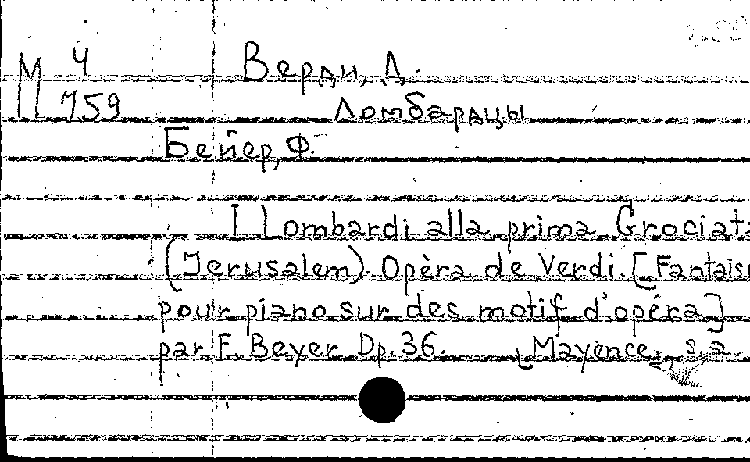 М 4 Верди, Д.
759 Ломбардцы
Бейер, Ф.
I Lombardi alla prima Crociat
(Jerusalem). Opèra de Verdi. [Fantais
pour piano sur des motif d'opéra]
par F. Beyer Op. 36. Mayence, s.a.